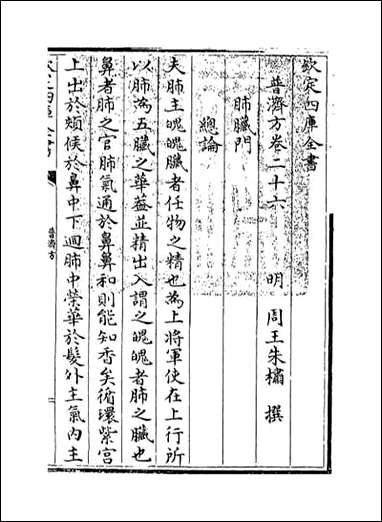 欽定四庫全書
普濟方卷二十六
明 周王朱橚 撰
肺臟門
總論
夫肺主魄魄臟者任物之精也為上將軍使在上行所
以肺為五臟之華蓋並精出入謂之魄魄者肺之臟也
鼻者肺之官肺氣通於鼻鼻和則能知香矣循環紫宮
上出於頰候於鼻中下迴肺中榮華於髮外主氣內主
普濟方